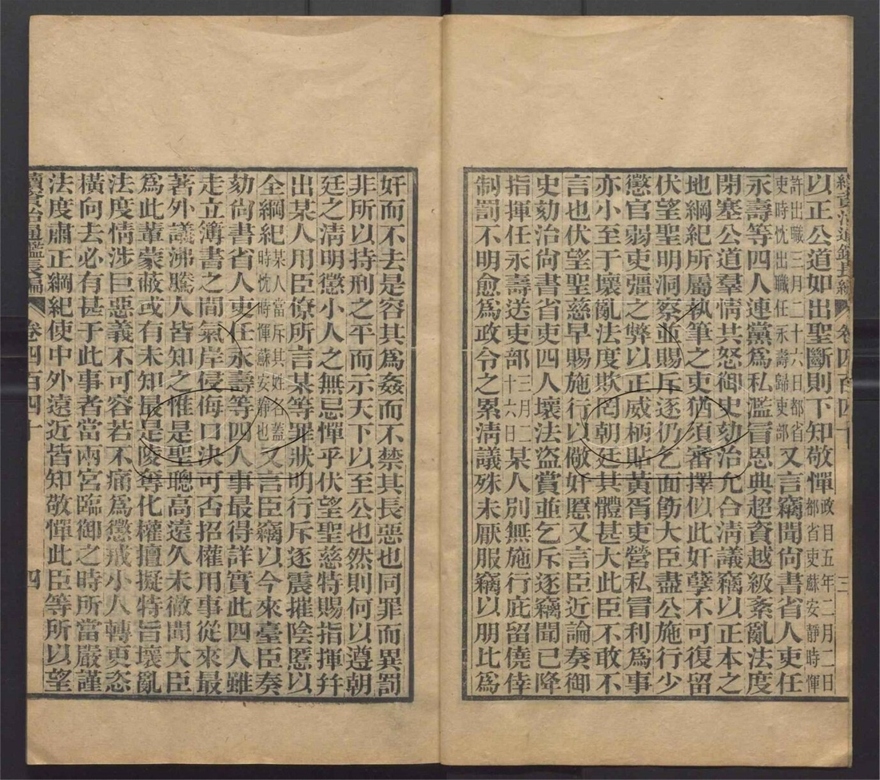 續資治通鑑長編 卷四百四十 三
以正公道如出聖斷則下知敬憚政目五年二月二日都省吏蘇安靜時惲
許出職三月二十六日都省吏時忱出職任永壽歸吏部又言竊聞尚書省人吏任
永壽等四人連黨為私濫冒恩典超資越級紊亂法度
閉塞公道羣情共怒御史劾治允合淸議竊以正本之
地綱紀所屬執筆之吏猶須審擇似此奸孽不可復留
伏望聖明洞察並賜斥逐仍乞面飭大臣盡公施行少
懲官弱吏彊之弊以正威柄貼黃胥吏營私冒利為事
亦小至于壞亂法度欺罔朝廷其體甚大此臣不敢不
言也伏望聖慈早賜施行以儆奸慝又言臣近論奏御
史劾治尚書省吏四人壞法盜賞並乞斥逐竊聞已降
指揮任永壽送吏部三月二十六日某人別無施行庇留僥倖
制罰不明愈為政令之累淸議殊未厭服竊以朋比為
奸而不去是容其為姦而不禁其長惡也同罪而異罰
非所以持刑之平而示天下以至公也然則何以遵朝
廷之淸明懲小人之無忌憚乎伏望聖慈特賜指揮幷
出某人用臣僚所言某等罪狀明行斥逐震摧陰慝以
全綱紀某人當斥其姓名蓋時忱時惲蘇安靜也又言臣竊以今來臺臣奏
劾尚書省人吏任永壽等四人事最得詳實此四人雖
走立簿書之間氣岸侵侮口決可否招權用事從來最
著外議沸騰人皆知之惟是聖聰高遠久未徹聞大臣
為此輩蒙蔽或有未知最是陵奪化權擅擬特旨壞亂
法度情涉巨惡義不可容若不痛為懲戒小人轉更恣
橫向去必有甚于此事者當兩宮臨御之時所當嚴謹
法度肅正綱紀使中外遠近皆知敬憚此臣等所以望
續資治通鑑長編 卷四百四十 四